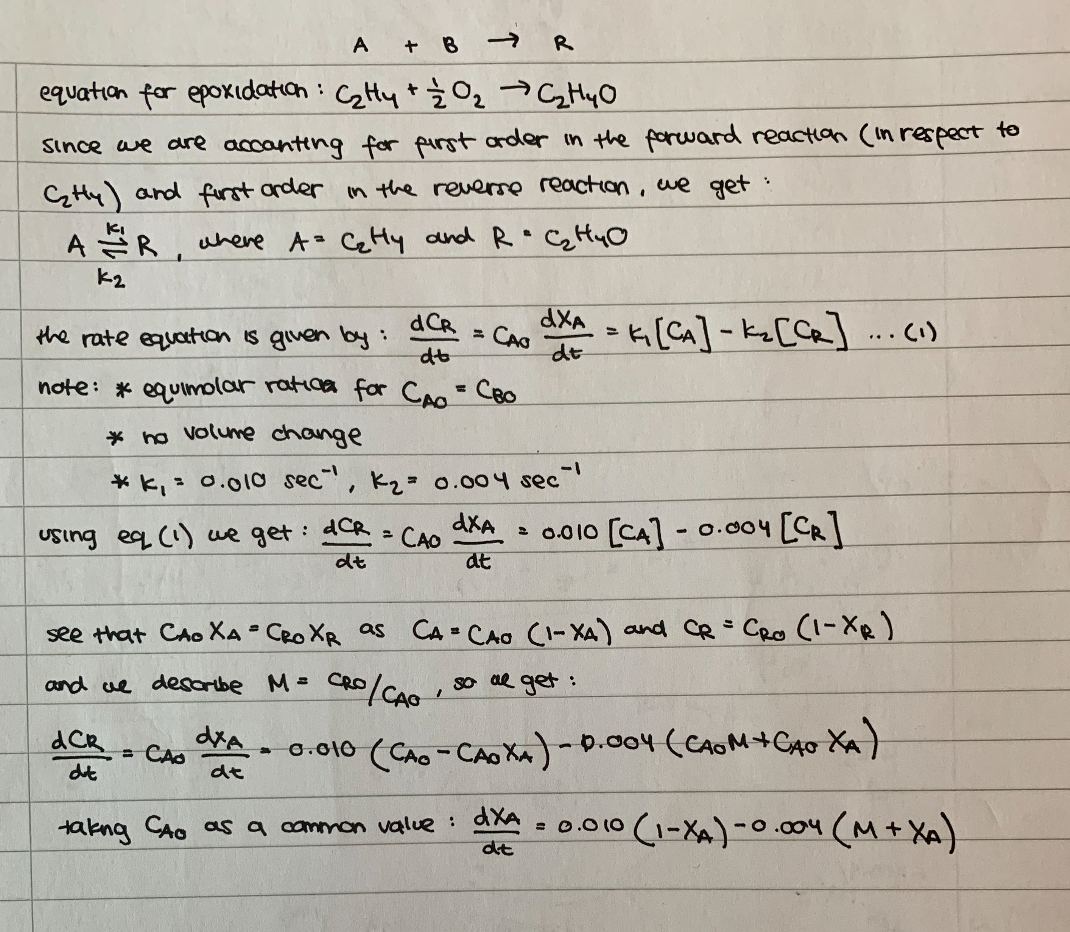 A + B → R
equation for epoxidation : C₂H₄ + ½ O₂ → C₂H₄O
since we are accanting for first order in the forward reaction (in respect to
C₂H₄) and first order in the reverse reaction, we get :
A ⇌ R , where A = C₂H₄ and R = C₂H₄O
k₁
k₂
the rate equation is given by : dCR/dt = CAO dXA/dt = k₁[CA] - k₂[CR] ... (1)
note: * equimolar ratios for CAO = CBO
* no volume change
* k₁ = 0.010 sec⁻¹, k₂ = 0.004 sec⁻¹
using eq (1) we get : dCR/dt = CAO dXA/dt = 0.010 [CA] - 0.004 [CR]
see that CAO XA = CRO XR as CA = CAO (1-XA) and CR = CRO (1-XR)
and we describe M = CRO/CAO , so we get :
dCR/dt = CAO dXA/dt = 0.010 (CAO - CAO XA) - 0.004 (CAO M + CAO XA)
takng CAO as a common value : dXA/dt = 0.010 (1-XA) - 0.004 (M + XA)